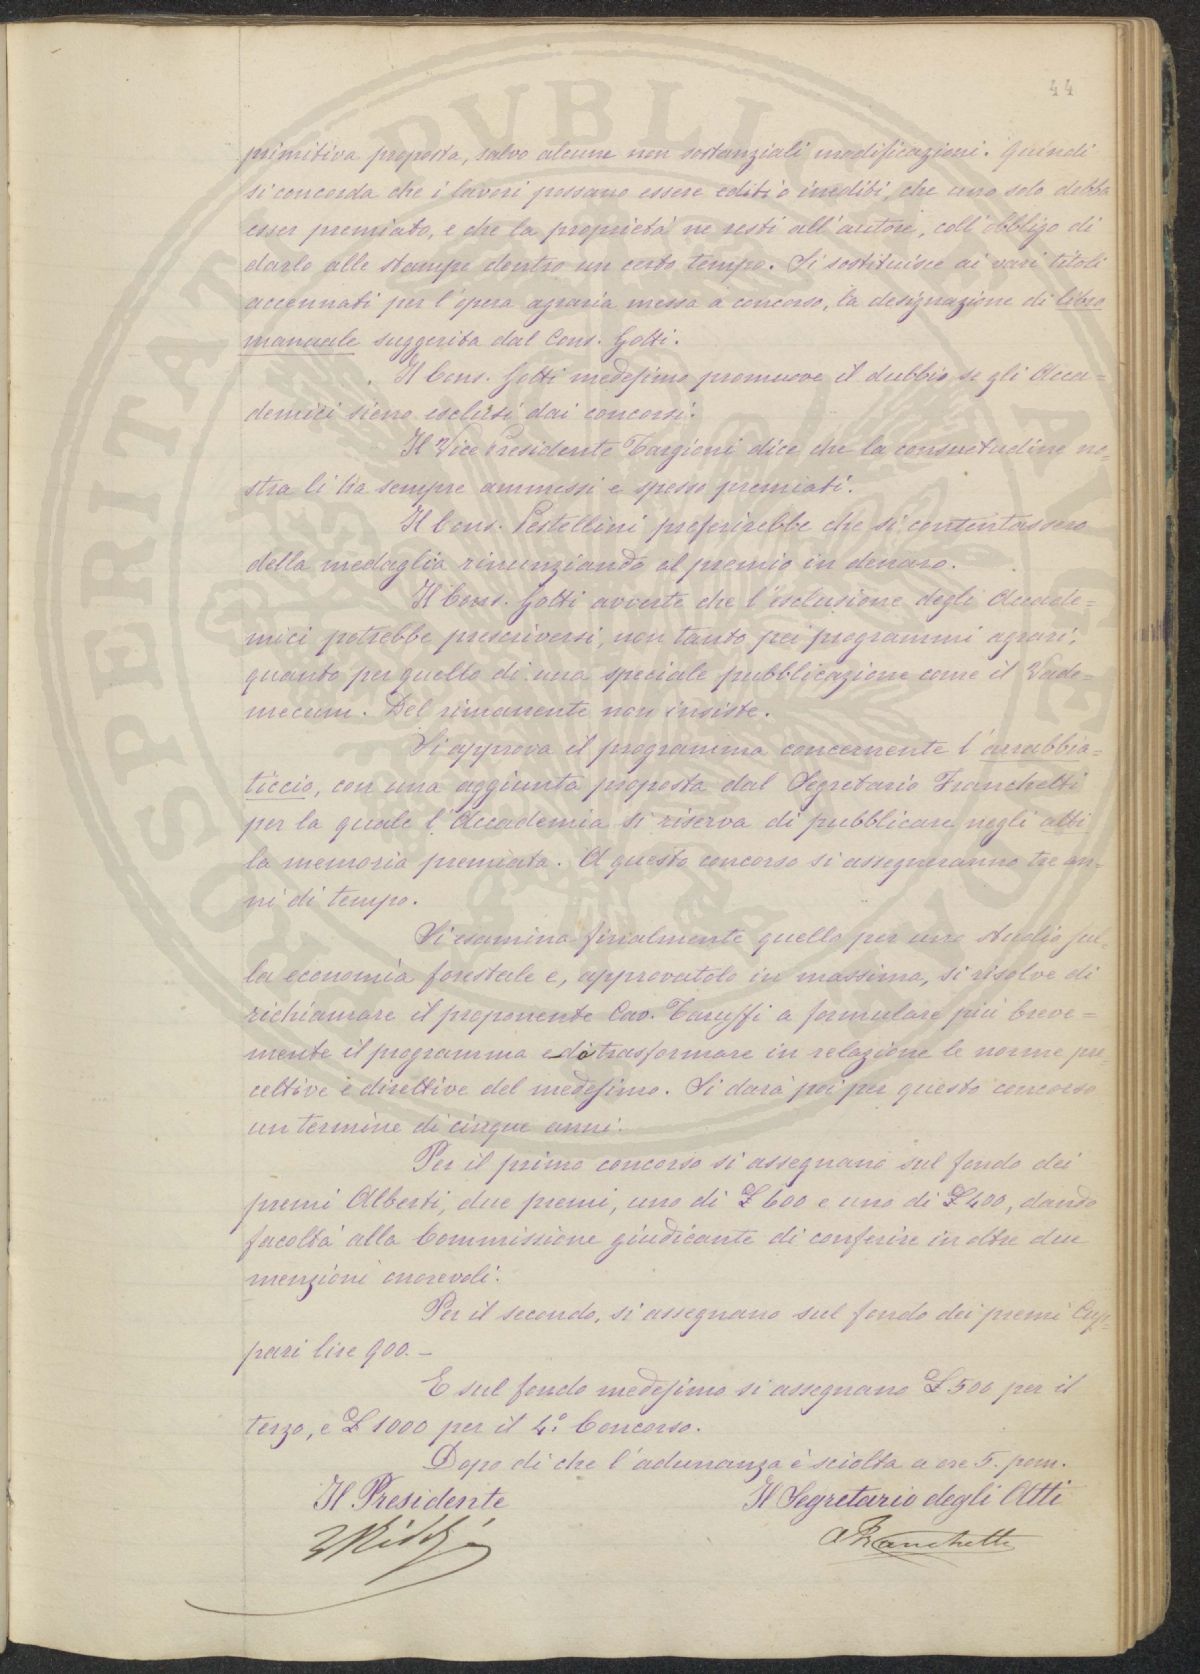 44
primitiva proposta, salvo alcune non sostanziali modificazioni. Quindi
si concorda che i lavori possano essere editi o inediti, che uno solo debba
esser premiato, e che la proprietà ne resti all'autore, coll'obbligo di
darlo alle stampe dentro un certo tempo. Si sostituisce ai vari titoli
accennati per l'opera agraria messa a concorso, la designazione di libro
manuale suggerita dal Cons. Gotti.
Il Cons. Gotti medesimo promuove il dubbio se gli Acca=
demici sieno esclusi dai concorsi.
Il Vice Presidente Targioni dice che la consuetudine no=
stra li ha sempre ammessi e spesso premiati.
Il Cons. Pestellini preferirebbe che si contentassero
della medaglia rinunziando al premio in denaro.
Il Cons. Gotti avverte che l'esclusione degli Accade=
mici potrebbe prescriversi, non tanto pei programmi agrari,
quanto per quello di una speciale pubblicazione come il Vade=
mecum. Del rimanente non insiste.
Si approva il programma concernente l'arrabbia=
ticcio, con una aggiunta proposta dal Segretario Franchetti
per la quale l'Accademia si riserva di pubblicare negli atti
la memoria premiata. A questo concorso si assegneranno tre an=
ni di tempo.
Si esamina finalmente quello per uno studio sul=
la economia forestale e, approvatolo in massima, si risolve di
richiamare il proponente Cav. Taruffi a formulare più breve=
mente il programma e di trasformare in relazione le norme pre=
cettive e direttive del medesimo. Si darà poi per questo concorso
un termine di cinque anni.
Per il primo concorso si assegnano sul fondo dei
premi Alberti, due premi, uno di £ 600 e uno di £ 400, dando
facoltà alla Commissione giudicante di conferire inoltre due
menzioni onorevoli.
Per il secondo, si assegnano sul fondo dei premi Cup=
pari lire 900.—
E sul fondo medesimo si assegnano £ 500 per il
terzo, e £ 1000 per il 4.º Concorso.
Dopo di che l'adunanza è sciolta a ore 5. pom.
Il Presidente Il Segretario degli Atti
AFranchetti